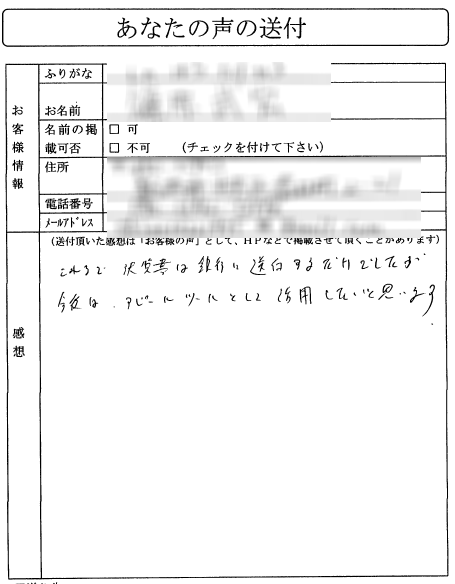 あなたの声の送付
お客様情報
ふりがな
お名前
名前の掲載可否
□ 可
□ 不可 (チェックを付けて下さい)
住所
電話番号
メールアドレス
感想
(送付頂いた感想は「お客様の声」として、HPなどで掲載させて頂くことがあります)
これまで 決算書は銀行に送付するだけでしたが
今後は、アピールツールとして 活用したいと思います